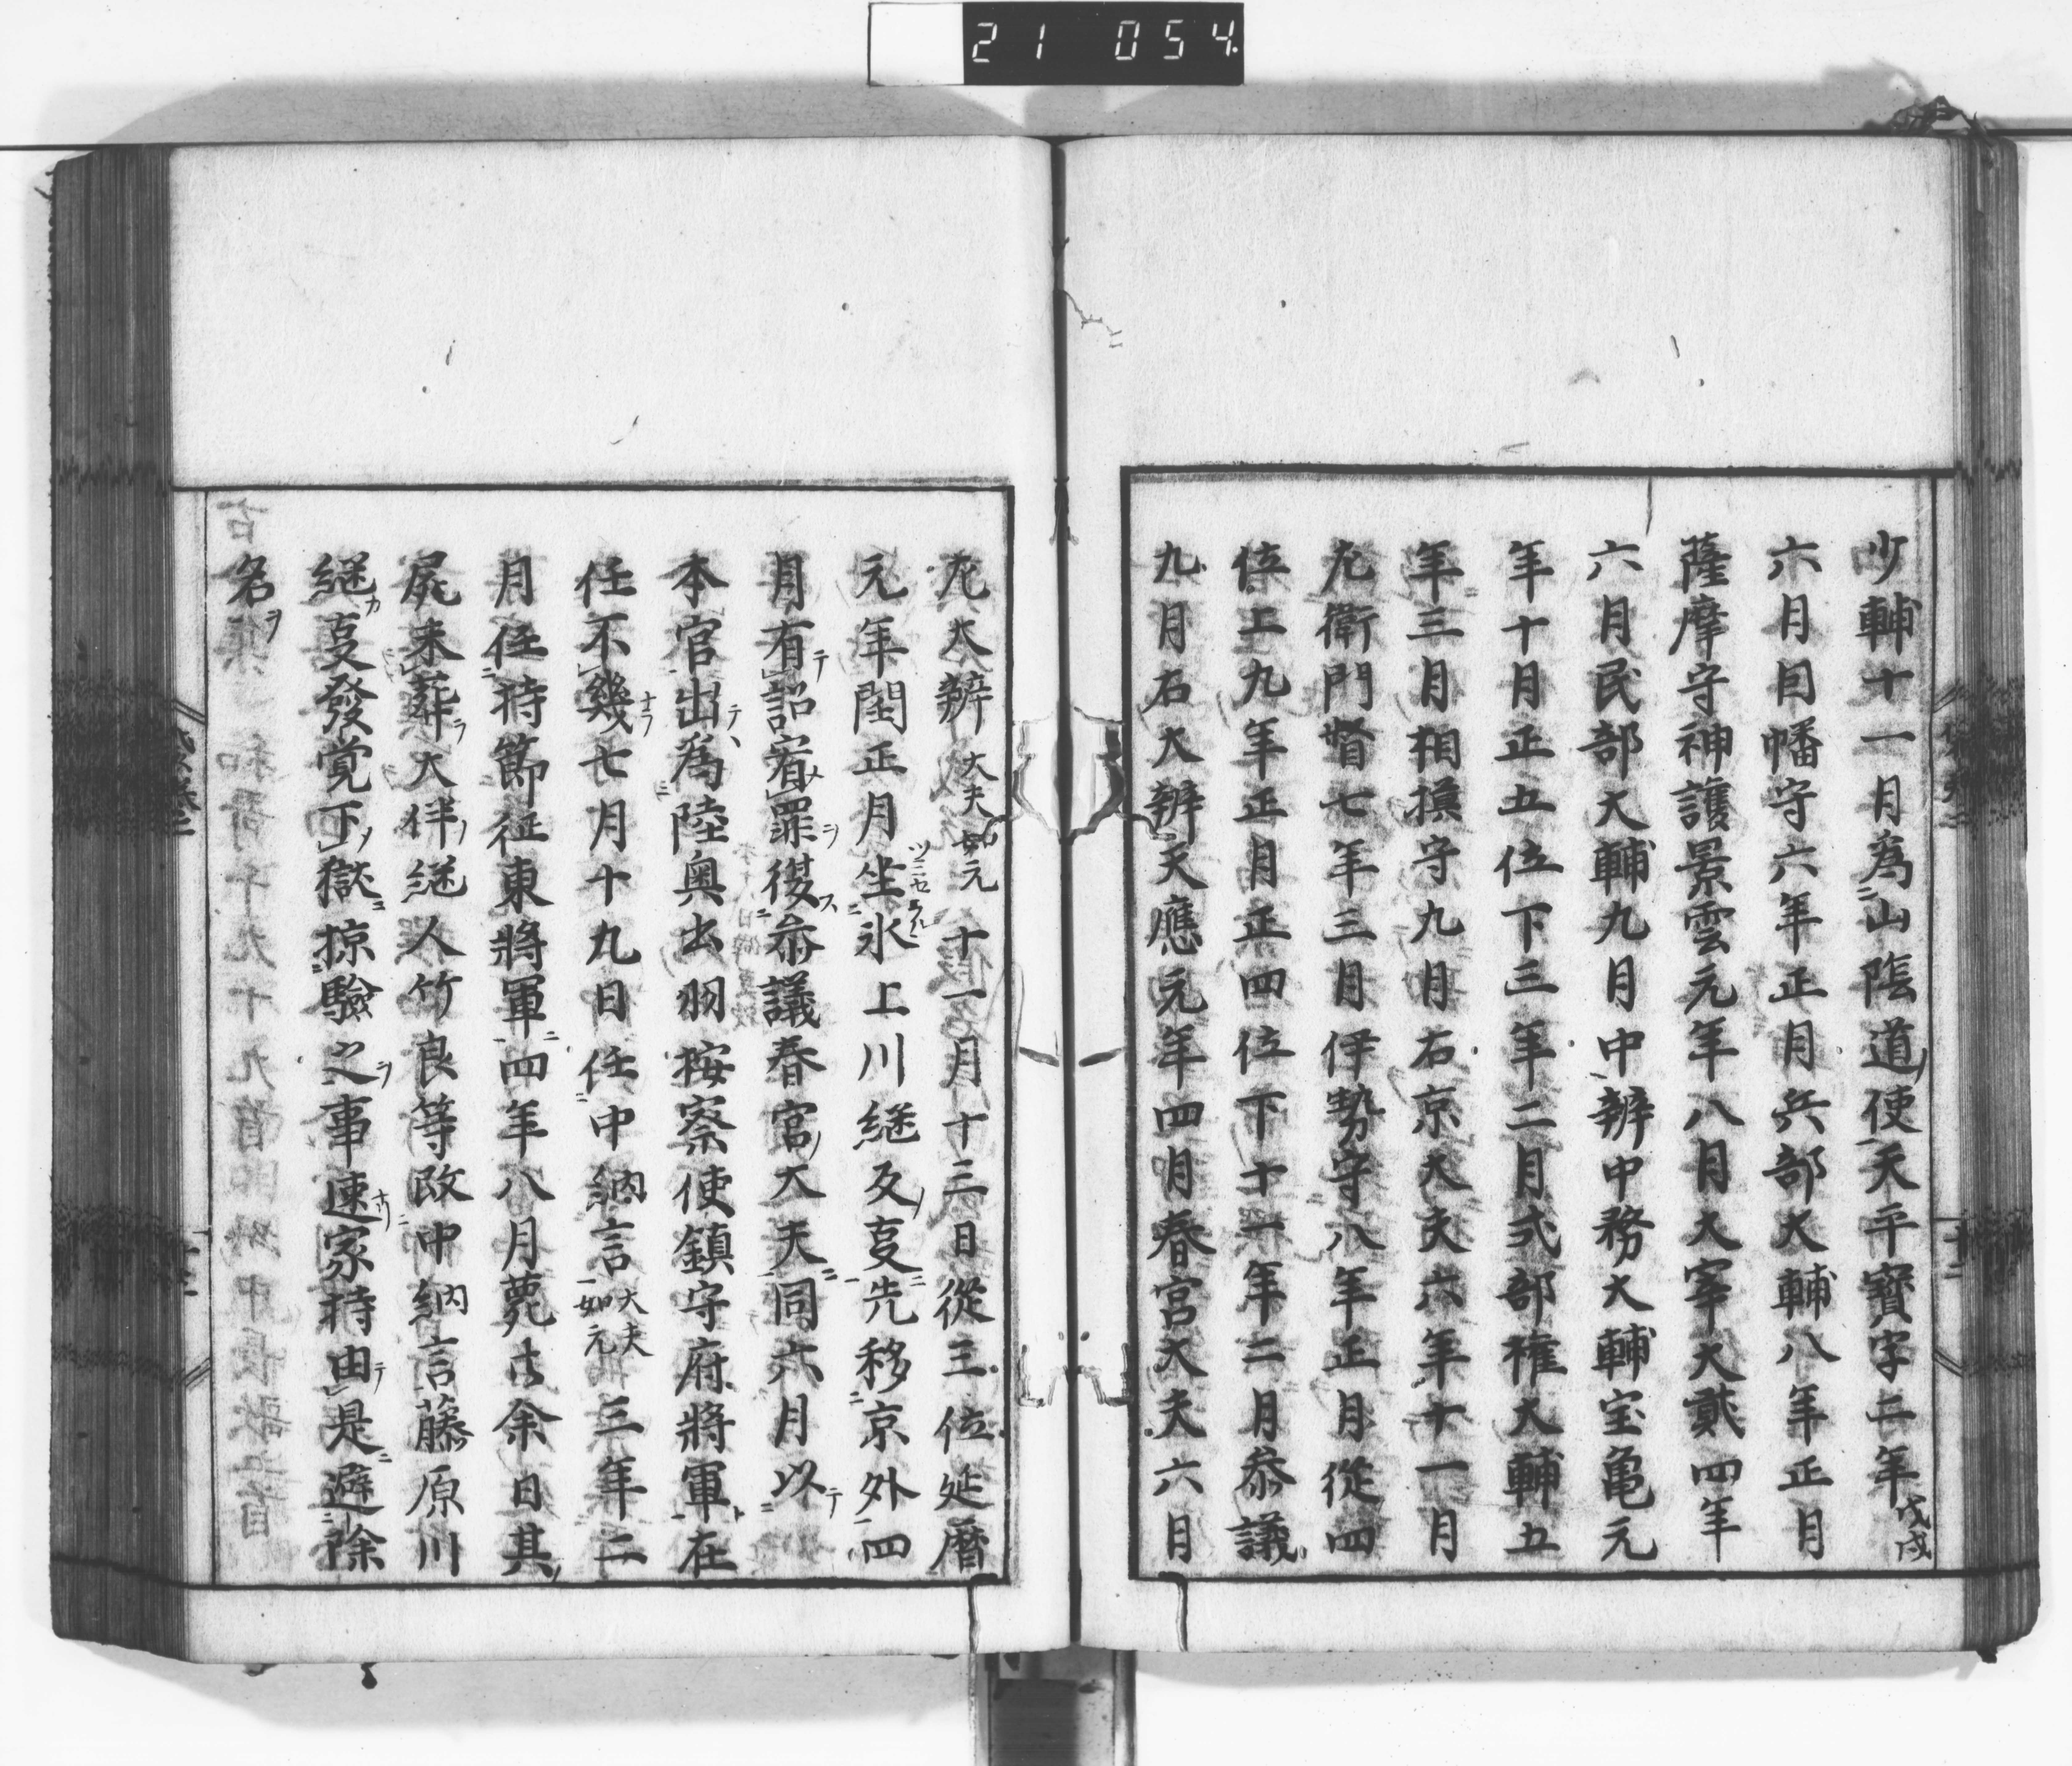 21 054
少輔十一月為山陰道使天平寶字二年戊戌
六月因幡守六年正月兵部大輔八年正月
薩摩守神護景雲元年八月大宰大貳四年
六月民部大輔九月中辨中務大輔宝亀元
年十月正五位下三年二月式部権大輔五
年三月相摸守九月右京大夫六年十一月
左衛門督七年三月伊勢守八年正月從四
位上九年正月正四位下十一年二月叅議
九月右大辨天應元年四月春宮大夫六月
左大辨大夫如元十一月十三日從三位延暦
元年閏正月坐氷上川継反㕝先移京外四
月有詔宥罪復叅議春宮大夫同六月以
本官出為陸奥出羽按察使鎮守府將軍在
任不幾七月十九日任中納言大夫如元三年二
月任持節征東將軍四年八月薨古余日其
屍未葬大伴継人竹良等改中納言藤原
継㕝發覚下獄掠驗之事連家持由是避除
名